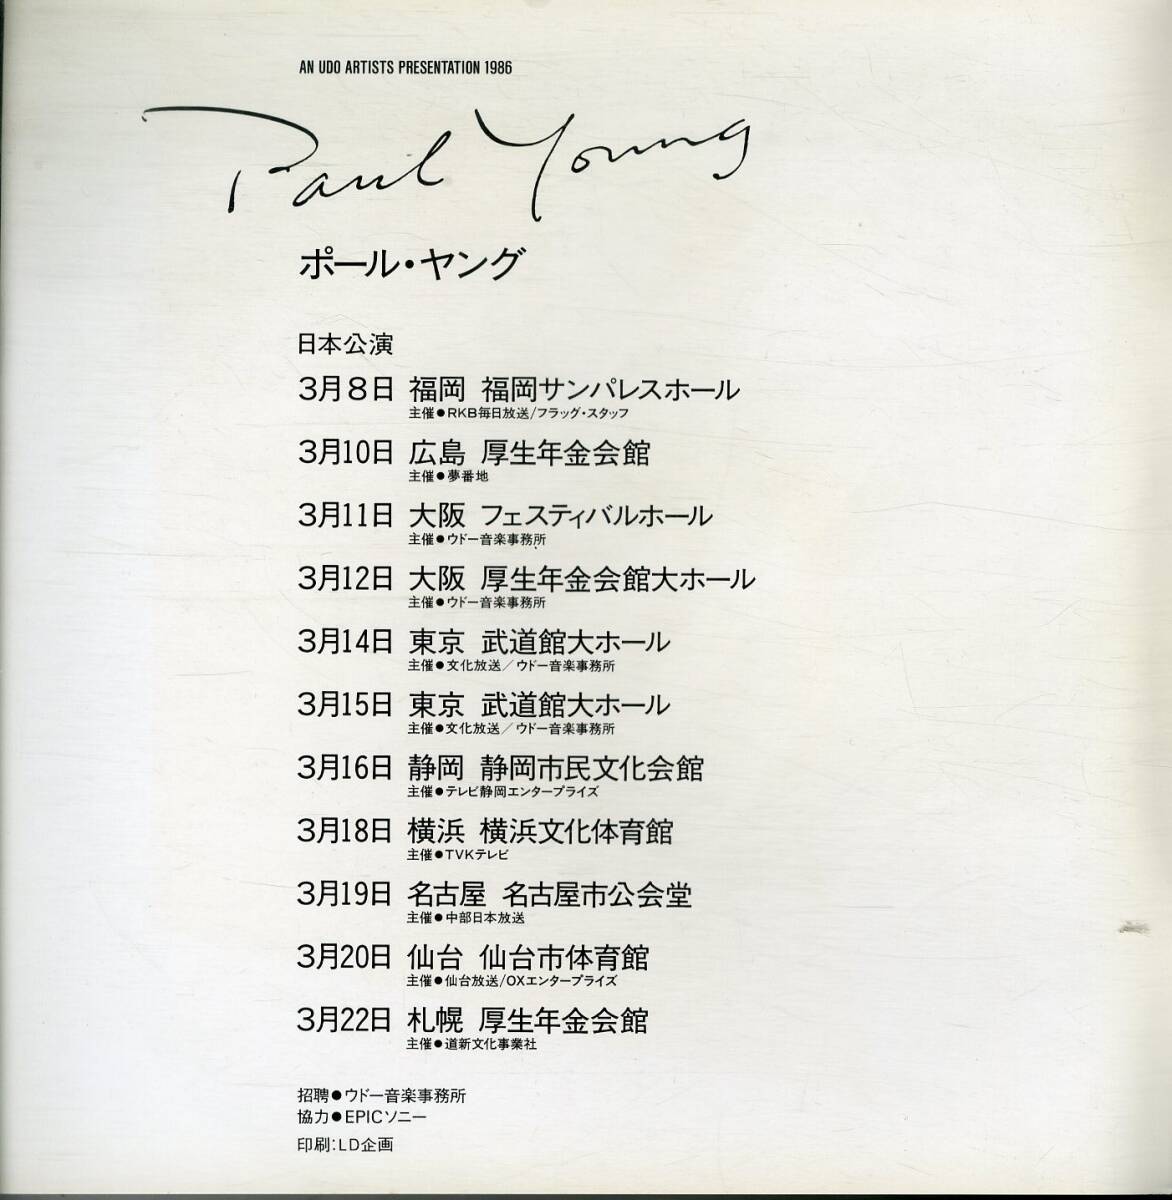 AN UDO ARTISTS PRESENTATION 1986
Paul Young
ポール・ヤング
日本公演
3月8日 福岡 福岡サンパレスホール
主催●RKB毎日放送/フラッグ・スタッフ
3月10日 広島 厚生年金会館
主催●夢番地
3月11日 大阪 フェスティバルホール
主催●ウドー音楽事務所
3月12日 大阪 厚生年金会館大ホール
主催●ウドー音楽事務所
3月14日 東京 武道館大ホール
主催●文化放送/ウドー音楽事務所
3月15日 東京 武道館大ホール
主催●文化放送/ウドー音楽事務所
3月16日 静岡 静岡市民文化会館
主催●テレビ静岡エンタープライズ
3月18日 横浜 横浜文化体育館
主催●TVKテレビ
3月19日 名古屋 名古屋市公会堂
主催●中部日本放送
3月20日 仙台 仙台市体育館
主催●仙台放送/OXエンタープライズ
3月22日 札幌 厚生年金会館
主催●道新文化事業社
招聘●ウドー音楽事務所
協力●EPICソニー
印刷:LD企画